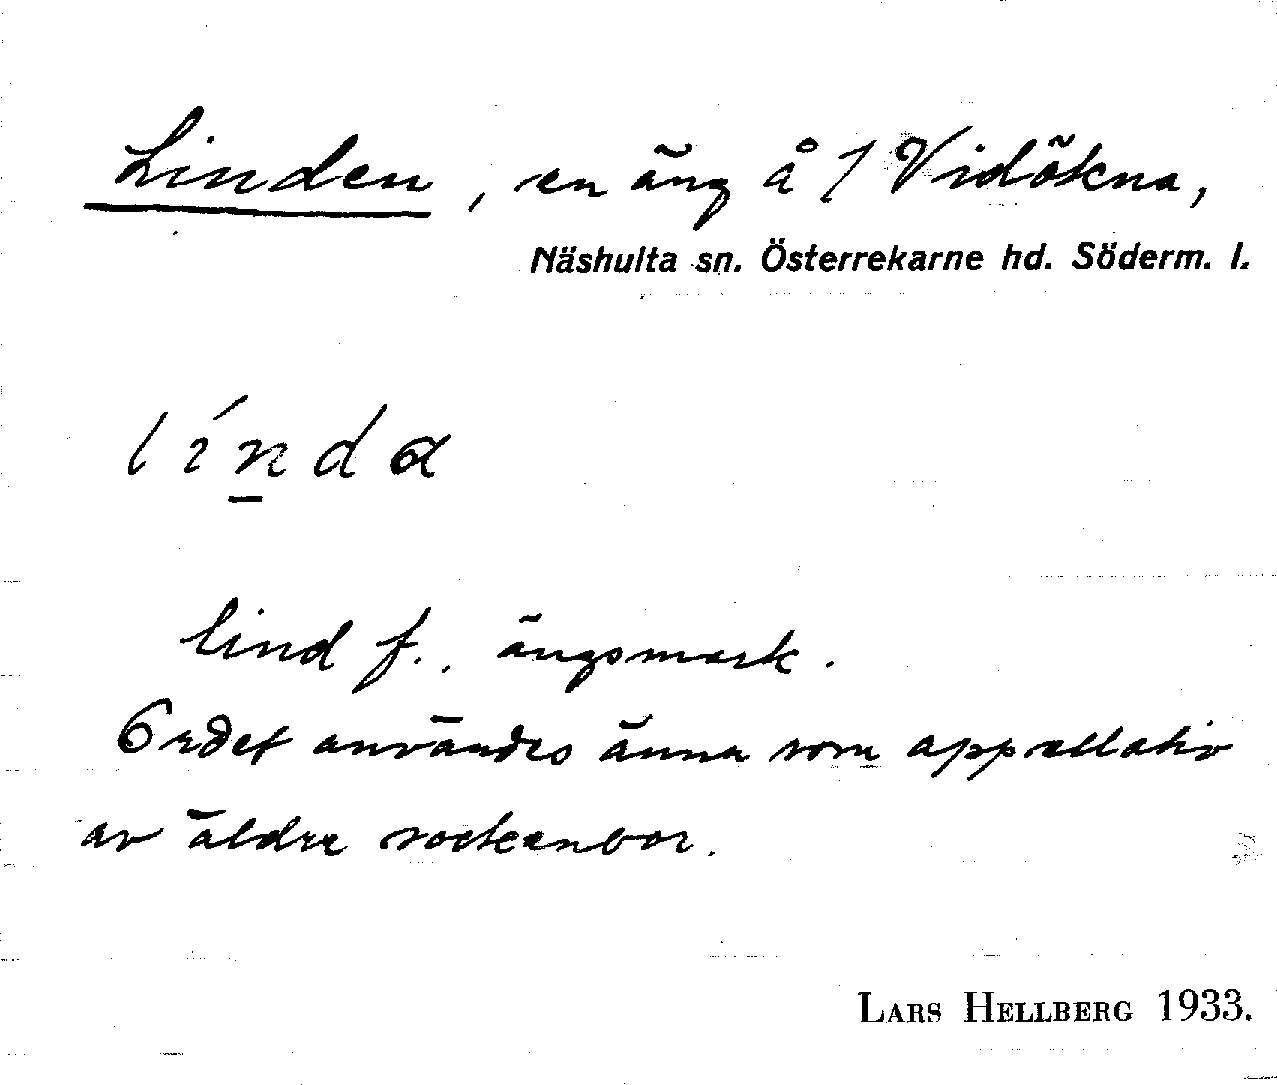 Linden, en äng å 1 Vidökna,
Näshulta sn. Österrekarne hd. Söderm. l.
línda
lind f., ängsmark.
Ordet användes änna som appellativ
av äldre sockenbor.
LARS HELLBERG 1933.